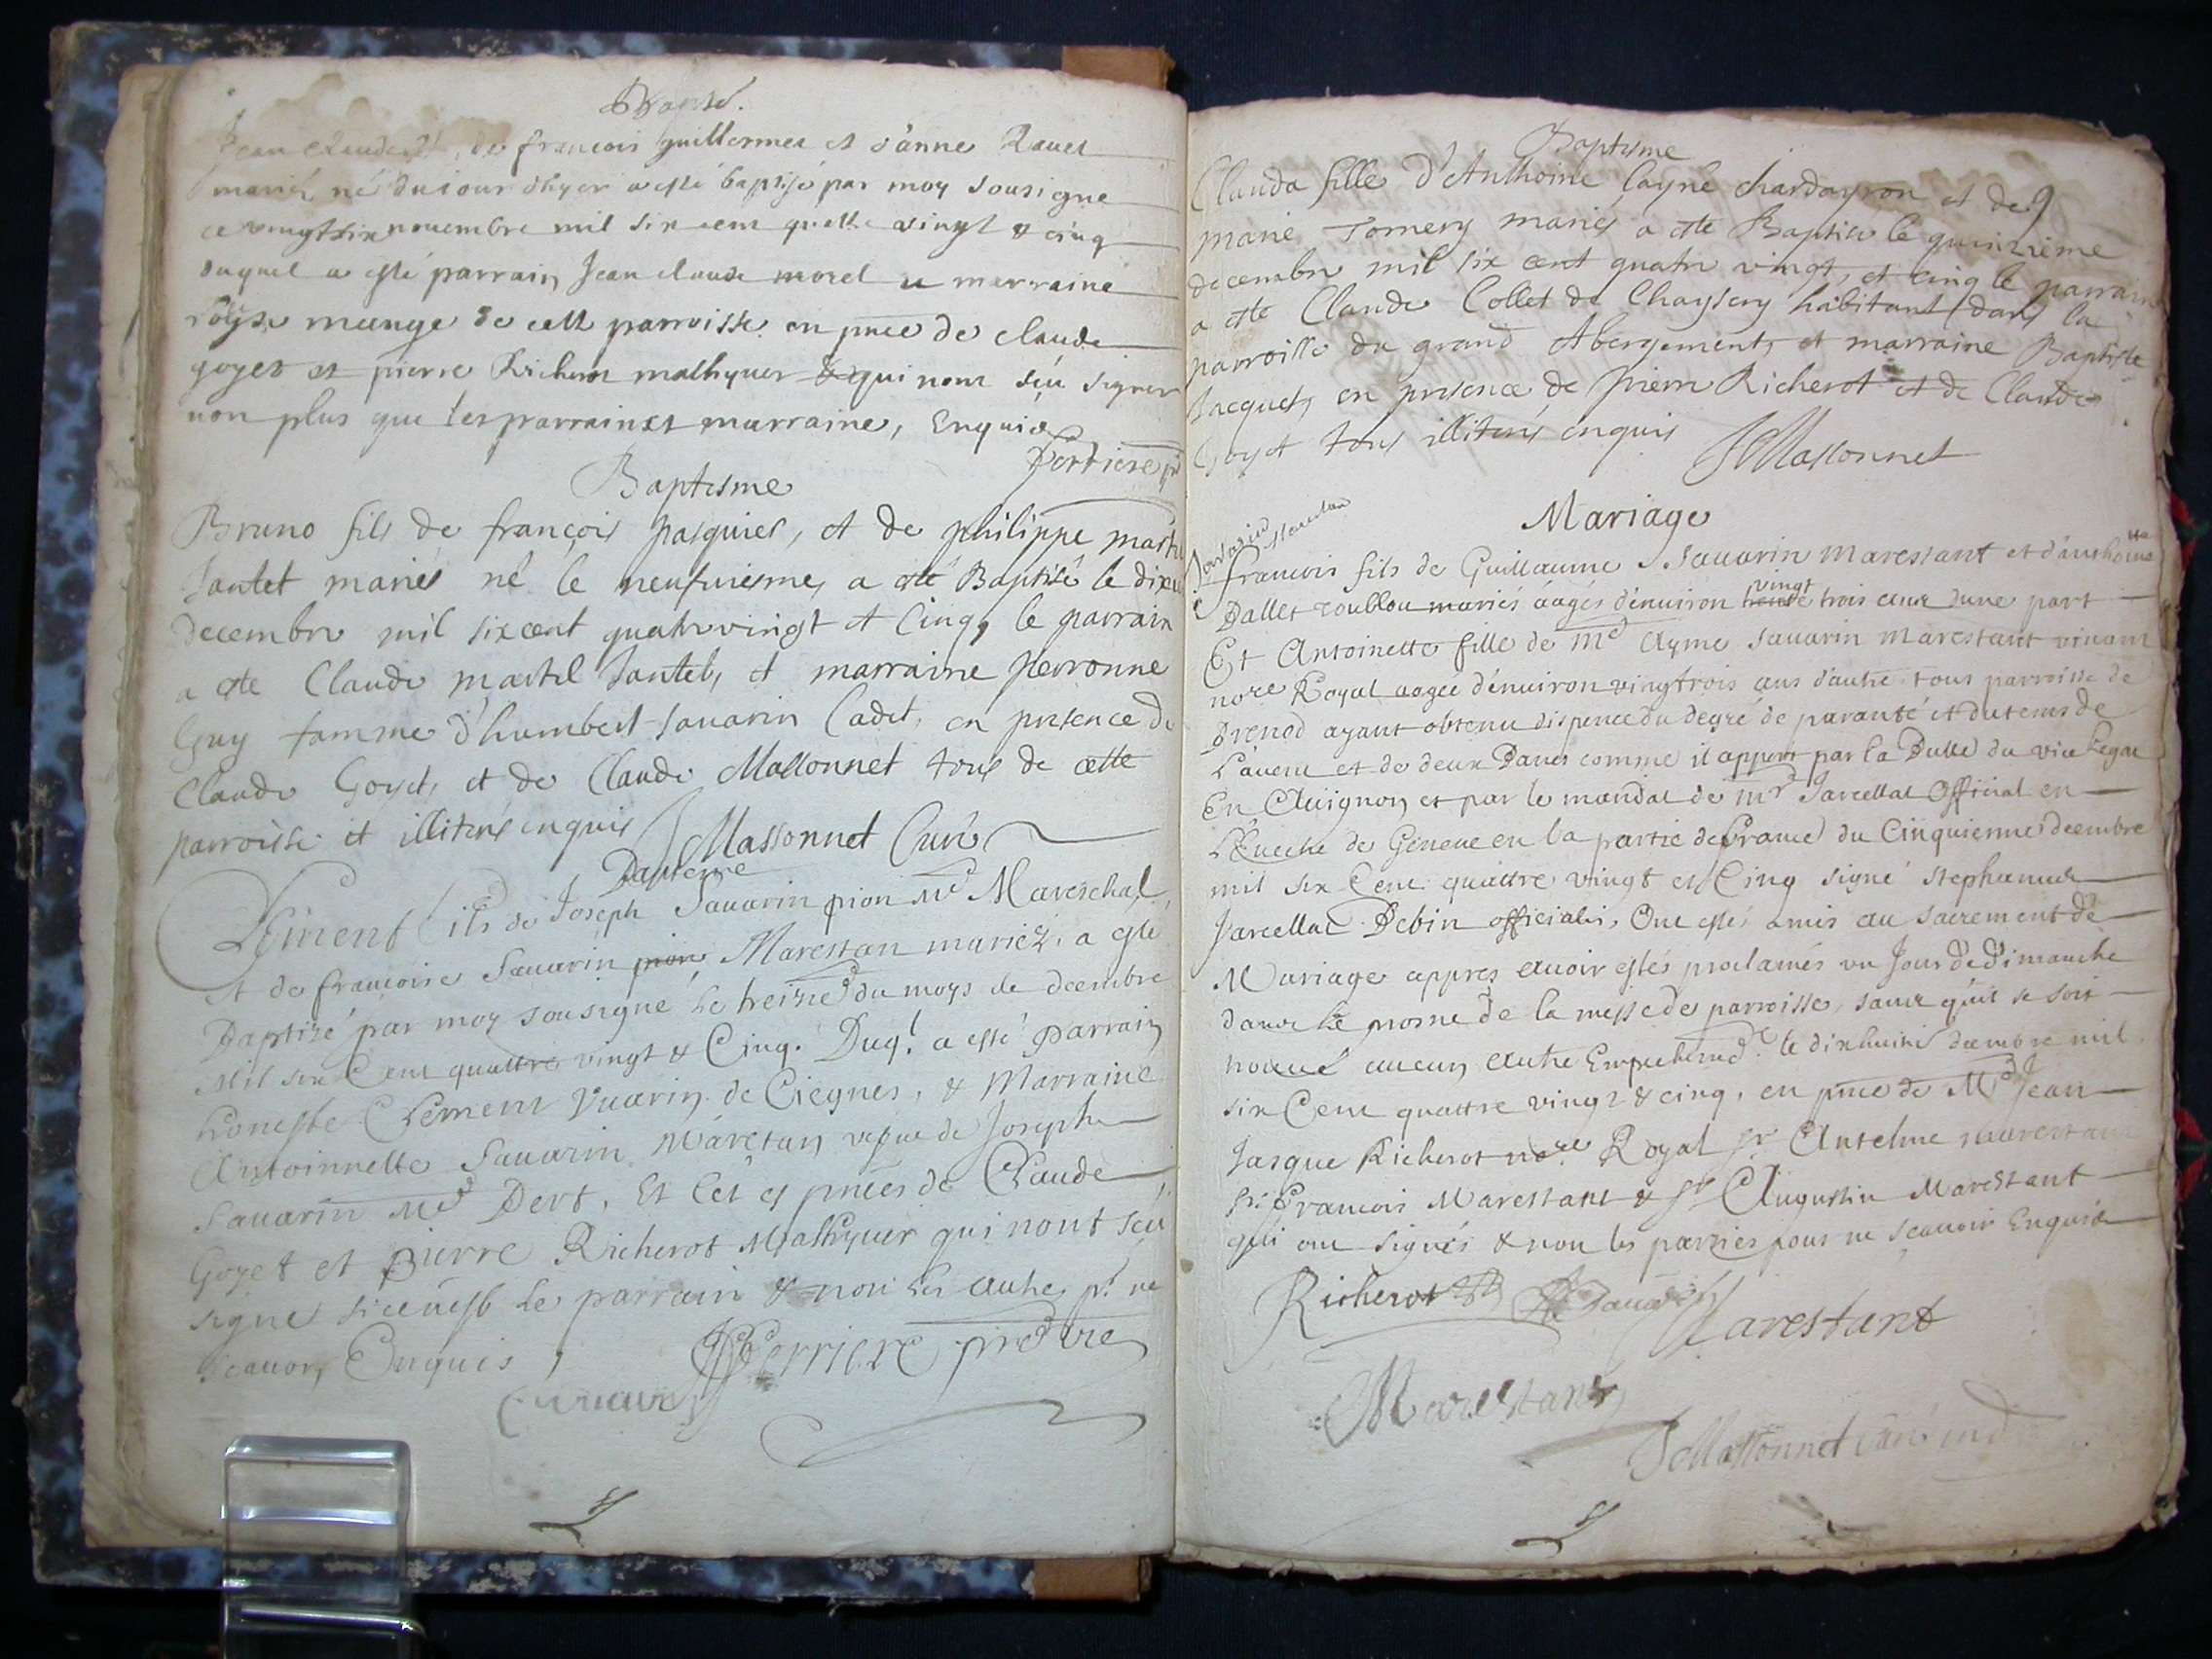 Baptê.
Jean Claude fils de francois guillermet et d'anne Ravet
mariés né du iour d'hyer a esté baptisé par moy sousigne
ce vingt six novembre mil six cent quattre vingt & cinq
duquel a esté parrain Jean claude morel et marraine
meunge de cette parroisse en pnce de claude
goyet et pierre Richerot malhyuer qui nont séu signer
non plus que les parrain et marraine, Enquis
Perriere
Baptesme
Bruno fils de françois pasquier, et de philippe martel
Jantet mariés né le neufuiesme, a esté Baptisé le dixie
decembre mil six cent quatre vingt et Cinq, le parrain
a este Claude martel Jantet, et marraine perronne
Guy famme d'humbert sauarin Cadet, en presence de
Claude Goyet, et de Claude Massonnet tous de cette
parroisse et illiterés enquis J Massonnet Curé
Bapteme
Clement fils de Joseph Sauarin pion Md Mareschal
et de francoise Sauarin pion Marestan mariéz, a esté
Baptizé par moy sousigné Le treize du moys de decembre
Mil six Cent quattre vingt & Cinq. Duql a esté parrain
honeste Clement Vuarin de Ciegnes, & Marraine
Antoinnette Sauarin Marestan vefue de Joseph
Sauarin Md Dert, Et Cet es pnces de Claude
Goyet et pierre Richerot Malhyuer qui nont séu
signe si ce n'est le parrain & non les autres pr ne
scauoir Enquis, Perriere prebtre
Baptesme
Clauda fille d'Anthoine layné chardayron et de
marie Tornery mariés a este Baptisée le quinzieme
decembre mil six cent quatre vingt, et cinq le parrain
a este Claude Collet de Chaysery habitant dans la
parroisse du grand Abergement, et marraine Baptiste
Jacquet, en presence de pierre Richerot et de Claude
Goyet tous illiterés enquis J Massonnet
Mariage
francois fils de Guillaume Sauarin marestant et d'anthoinette
Ballet roublou mariés aagés d'enuiron trente vingt trois ans dune part
Et Antoinette fille de Md Ayme Sauarin Marestant viuant
nore Royal aagée d'enuiron vingt trois ans d'autre tous parroisse de
Brenod ayant obtenu dispence du degré de paranté et du tems de
L'auent et de deux Bancs comme il appert par la Bulle du vice Legat
En Auignon et par le mandat de mr Jarcellat Official en
L'Eueche de Geneue en la partie de france du Cinquienne decembre
mil six Cent quattre vingt et Cinq signé stephanus
Jarcellat Debin officialis, Ont estés amis au sacrement de
Mariage appres auoir estés proclamés un Jour de dimanche
dans le prosne de la messe de parroisse, sans qu'il se soit
trouué aucun autre Empechemd. le dixhuict decembre mil
six Cent quattre vingt & cinq, en pnce de Md Jean
Jasque Richerot nore Royal sr Antelme marestant
sr francois Marestant & sr Augustin Marestant
qui ont signés & non les parties pour ne scauoir Enquis
Richerot
Marestant
Marestant
J Massonnet curé